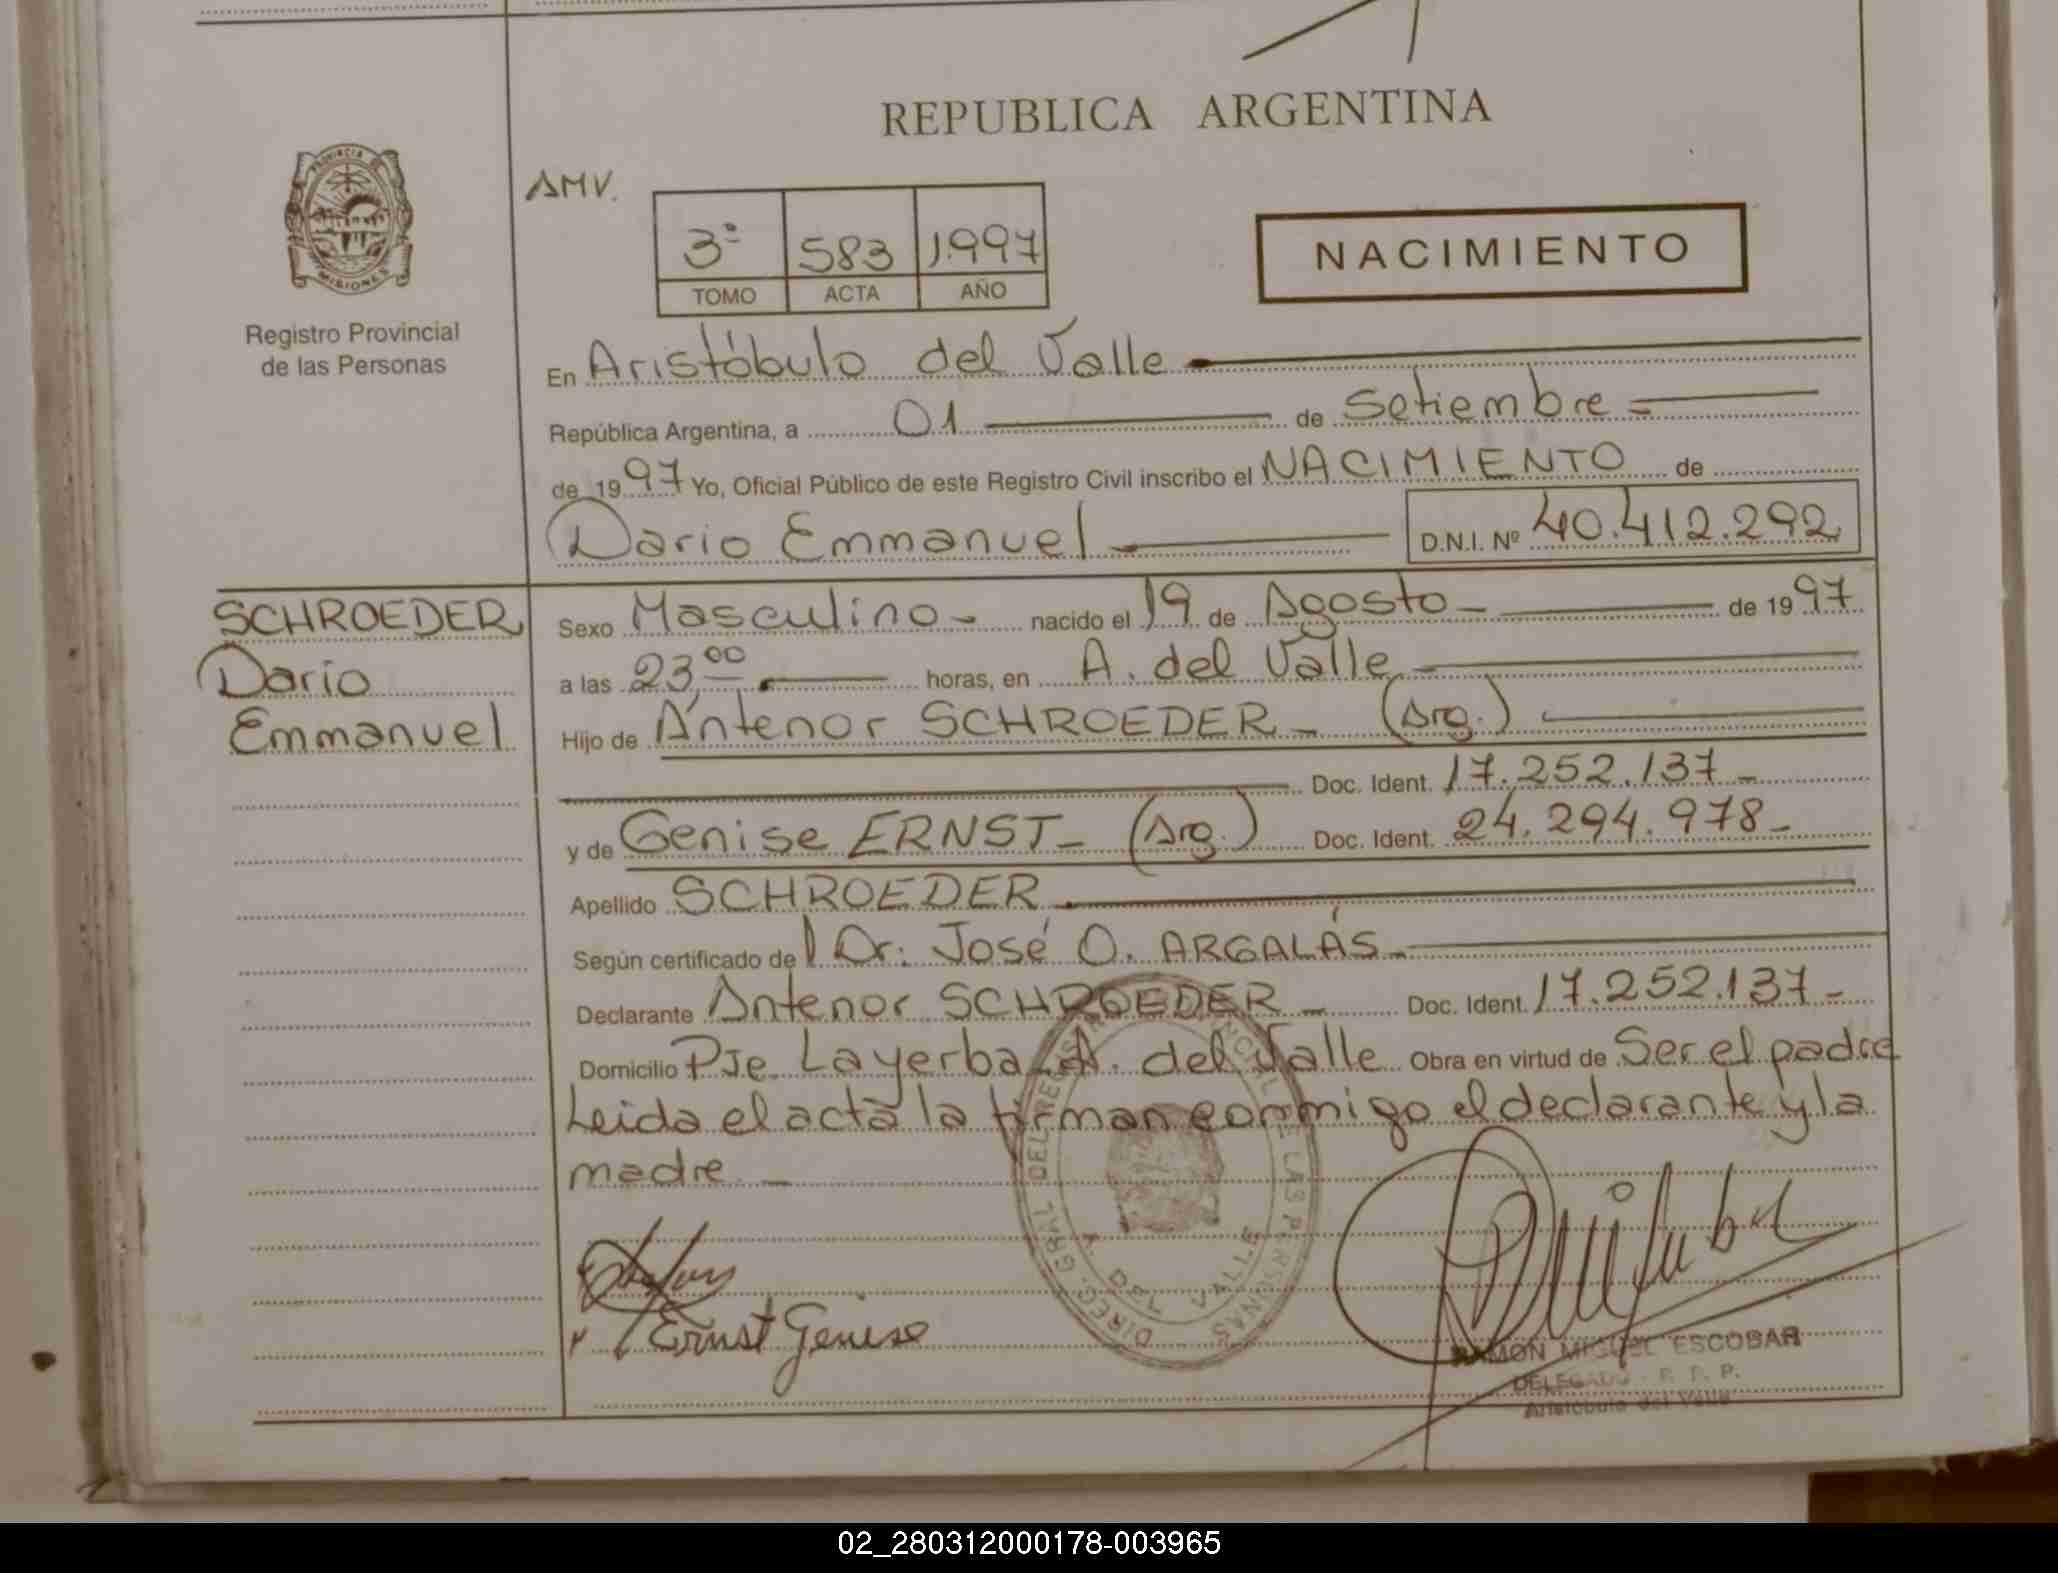 REPUBLICA ARGENTINA
PROVINCIA DE
MISIONES
Registro Provincial
de las Personas
AMV.
3º 583 1.997
TOMO ACTA AÑO
NACIMIENTO
En Aristóbulo del Valle
República Argentina, a 01 de Setiembre
de 1997 Yo, Oficial Público de este Registro Civil inscribo el NACIMIENTO de
Dario Emmanuel D.N.I. Nº 40.412.292
SCHROEDER
Dario
Emmanuel
Sexo Masculino nacido el 19 de Agosto de 1997
a las 23,00 horas, en A. del Valle
Hijo de Antenor SCHROEDER (Arg.)
Doc. Ident. 17.252.137
y de Genise ERNST (Arg.) Doc. Ident. 24.294.978
Apellido SCHROEDER
Según certificado del Dr: José O. ARGALÁS
Declarante Antenor SCHROEDER Doc. Ident. 17.252.137
Domicilio Pje. La yerba A. del Valle Obra en virtud de Ser el padre
Leida el acta la firman conmigo el declarante y la
madre.
Ernst Genise
DIREC. GRAL DEL REGISTRO PROVINCIAL DE LAS PERSONAS
A. DEL VALLE
RAMON MIGUEL ESCOBAR
DELEGADO - R. P. P.
Aristóbulo del Valle
02_280312000178-003965